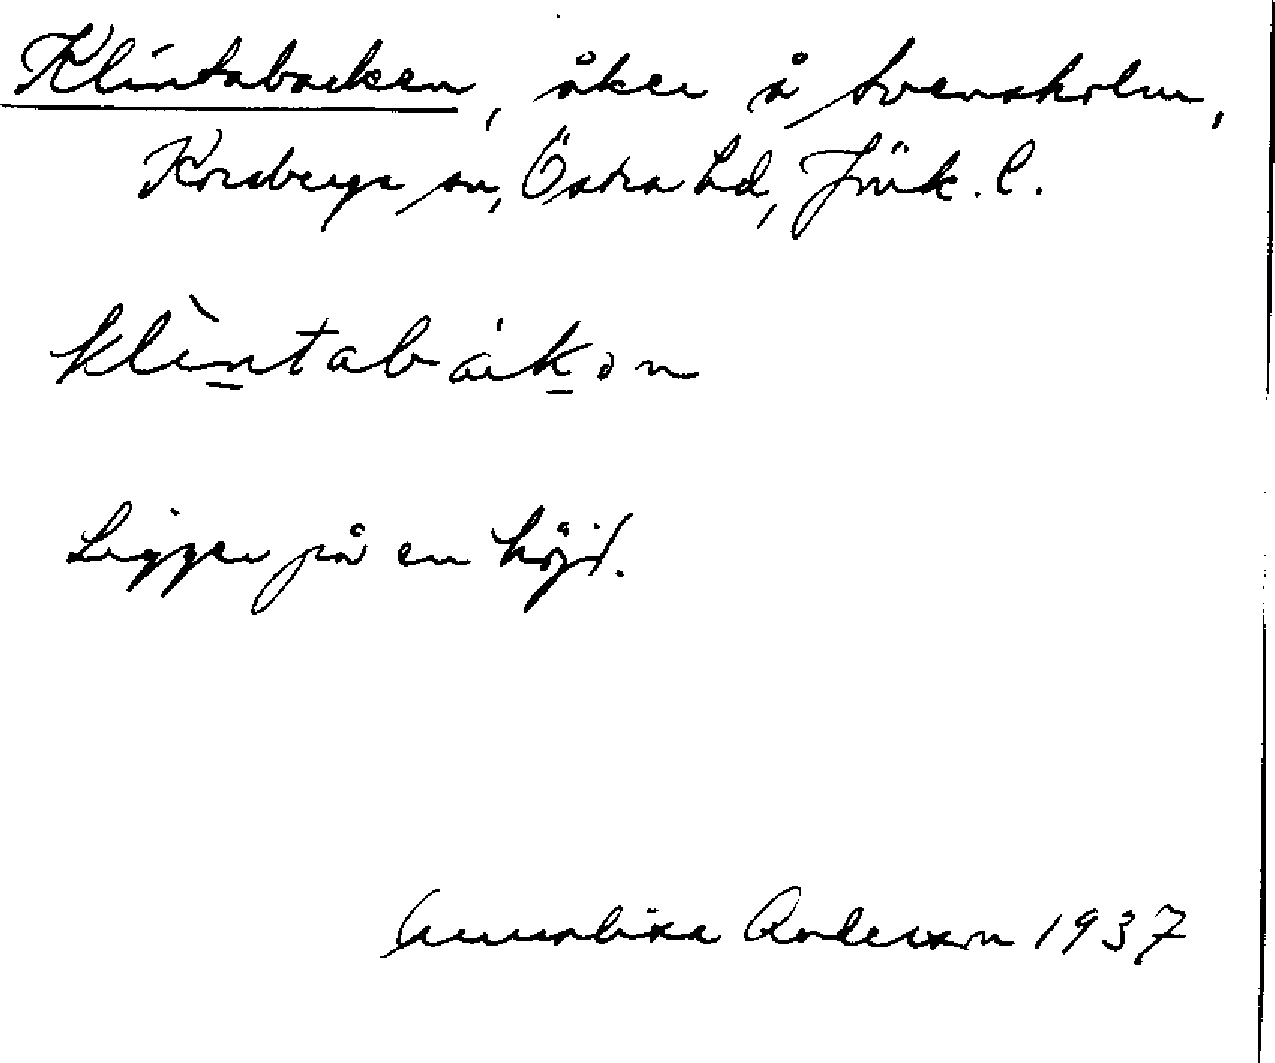 Klintabacken, åker å Svensholm,
Korsberga sn, Östra hd, Jönk. l.
klìntabákən
Ligger på en höjd.
Annalisa Anderson 1937